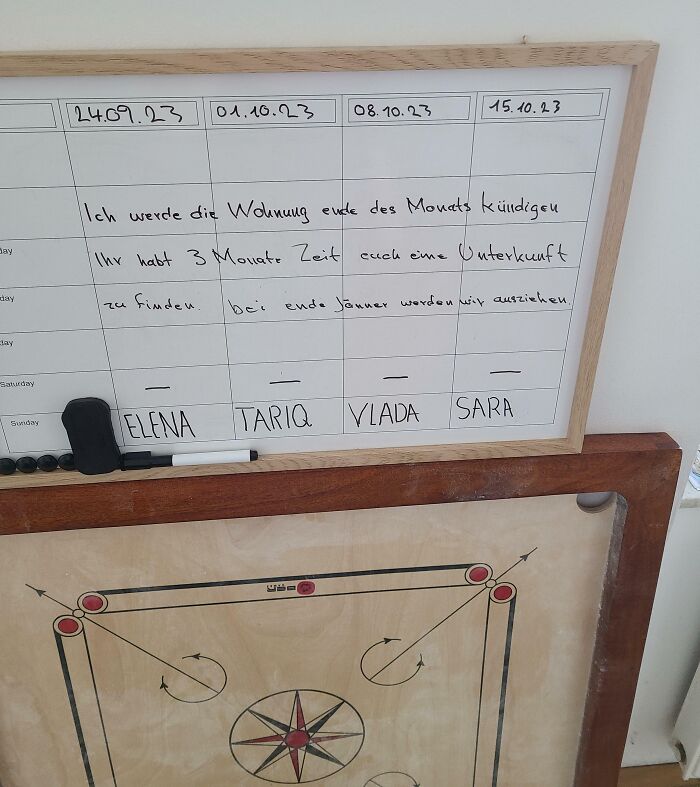 24.09.23 01.10.23 08.10.23 15.10.23
Ich werde die Wohnung ende des Monats kündigen
day Ihr habt 3 Monate Zeit euch eine Unterkunft
day zu finden. bei ende Jänner werden wir ausziehen.
day
Saturday — — — —
Sunday ELENA TARIQ VLADA SARA